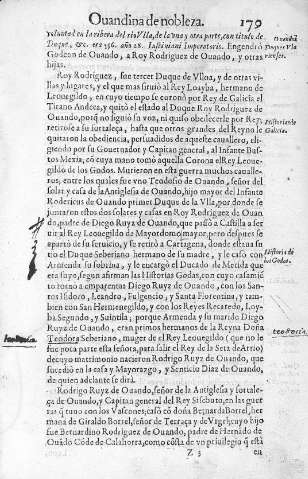 Ouandina de nobleza. 179
voluntad en la ribera del rio Vlla, de la vna y otra parte, con titulo de
Duque, &c. era 556. año 28. Iustiniani Imperatoris. Engendró
Godeon de Ouando, a Roy Rodriguez de Ouando, y otras
hijas.
Roy Rodriguez, fue tercer Duque de Vlloa, y de otras vi-
llas y lugares, y el que mas siruió al Rey Loayba, hermano de
Leouegildo, en cuyo tiempo se coronó por Rey de Galicia el
Tirano Andeca, y quitó el estado al Duque Roy Rodriguez de
Ouando, porq̃ no siguió su voz, ni quiso obedecerle por Rey,
retirose a su fortaleça, hasta que otros grandes del Reyno le
quitaron la obediencia, persuadidos de aqueste cauallero, eli-
giendo por su Gouernador y Capitan general, al Infante Bus-
tos Mexia, cõ cuya mano tomó aquella Corona el Rey Leoue-
gildo de los Godos. Murieron en esta guerra muchos caualle-
ros, entre los quales fue vno Teodosio de Ouando, señor del
solar y casa de la Antiglesia de Ouando, hijo mayor del Infante
Rodericus de Ouando primer Duque de la Vlla, por donde se
juntaron estos dos solares y casas en Roy Rodriguez de Ouan
do, padre de Diego Ruyz de Ouando, que pasó a Castilla a ser-
uir al Rey Leouegildo de Mayordomo mayor, pero despues se
apartó de su seruicio, y se retiró a Cartagena, donde estaua su
tio el Duque Seberiano hermano de su madre, y le casó con
Armenda su sobrina, y le encargó el Ducado de Merida que
era suyo, segun afirman las Historias Godas, con cuyo casamiẽ
to tornó a emparentar Diego Ruyz de Ouando, con los San-
tos Isidoro, Leandro, Fulgencio, y Santa Florentina, y tam-
bien con San Hermenegildo, y con los Reyes Recaredo, Loy-
ba Segundo, y Suintila; porque Armenda y su marido Diego
Ruyz de Ouando, eran primos hermanos de la Reyna Doña
Teodora Seberiano, muger de el Rey Leouegildo ( que no le
fue poca parte esta señora, para salir el Rey de la Seta de Arrio)
de cuyo matrimonio nacieron Rodrigo Ruyz de Ouando, que
sucedió en la casa y Mayorazgo, y Senticio Diaz de Ouando,
de quien adelante se dirá.
Rodrigo Ruyz de Ouando, señor de la Antiglesia y fortale-
ça de Ouando, y Capitan general del Rey Sisebuto, en las gue
rras q̃ tuuo con los Vascones, casó cõ doña Bernarda Borrel, her
mana de Giraldo Borrel, señor de Terraça y de Vrgel, cuyo hijo
fue Bernardino Rodriguez de Ouando, padre de Hernãdo de
Ouãdo Cõde de Calahorra, como cõsta de vn priuilegio q̃ está
Z 3 en
Historias de
Galicia.
Historia de
los Godos.
teodosia.